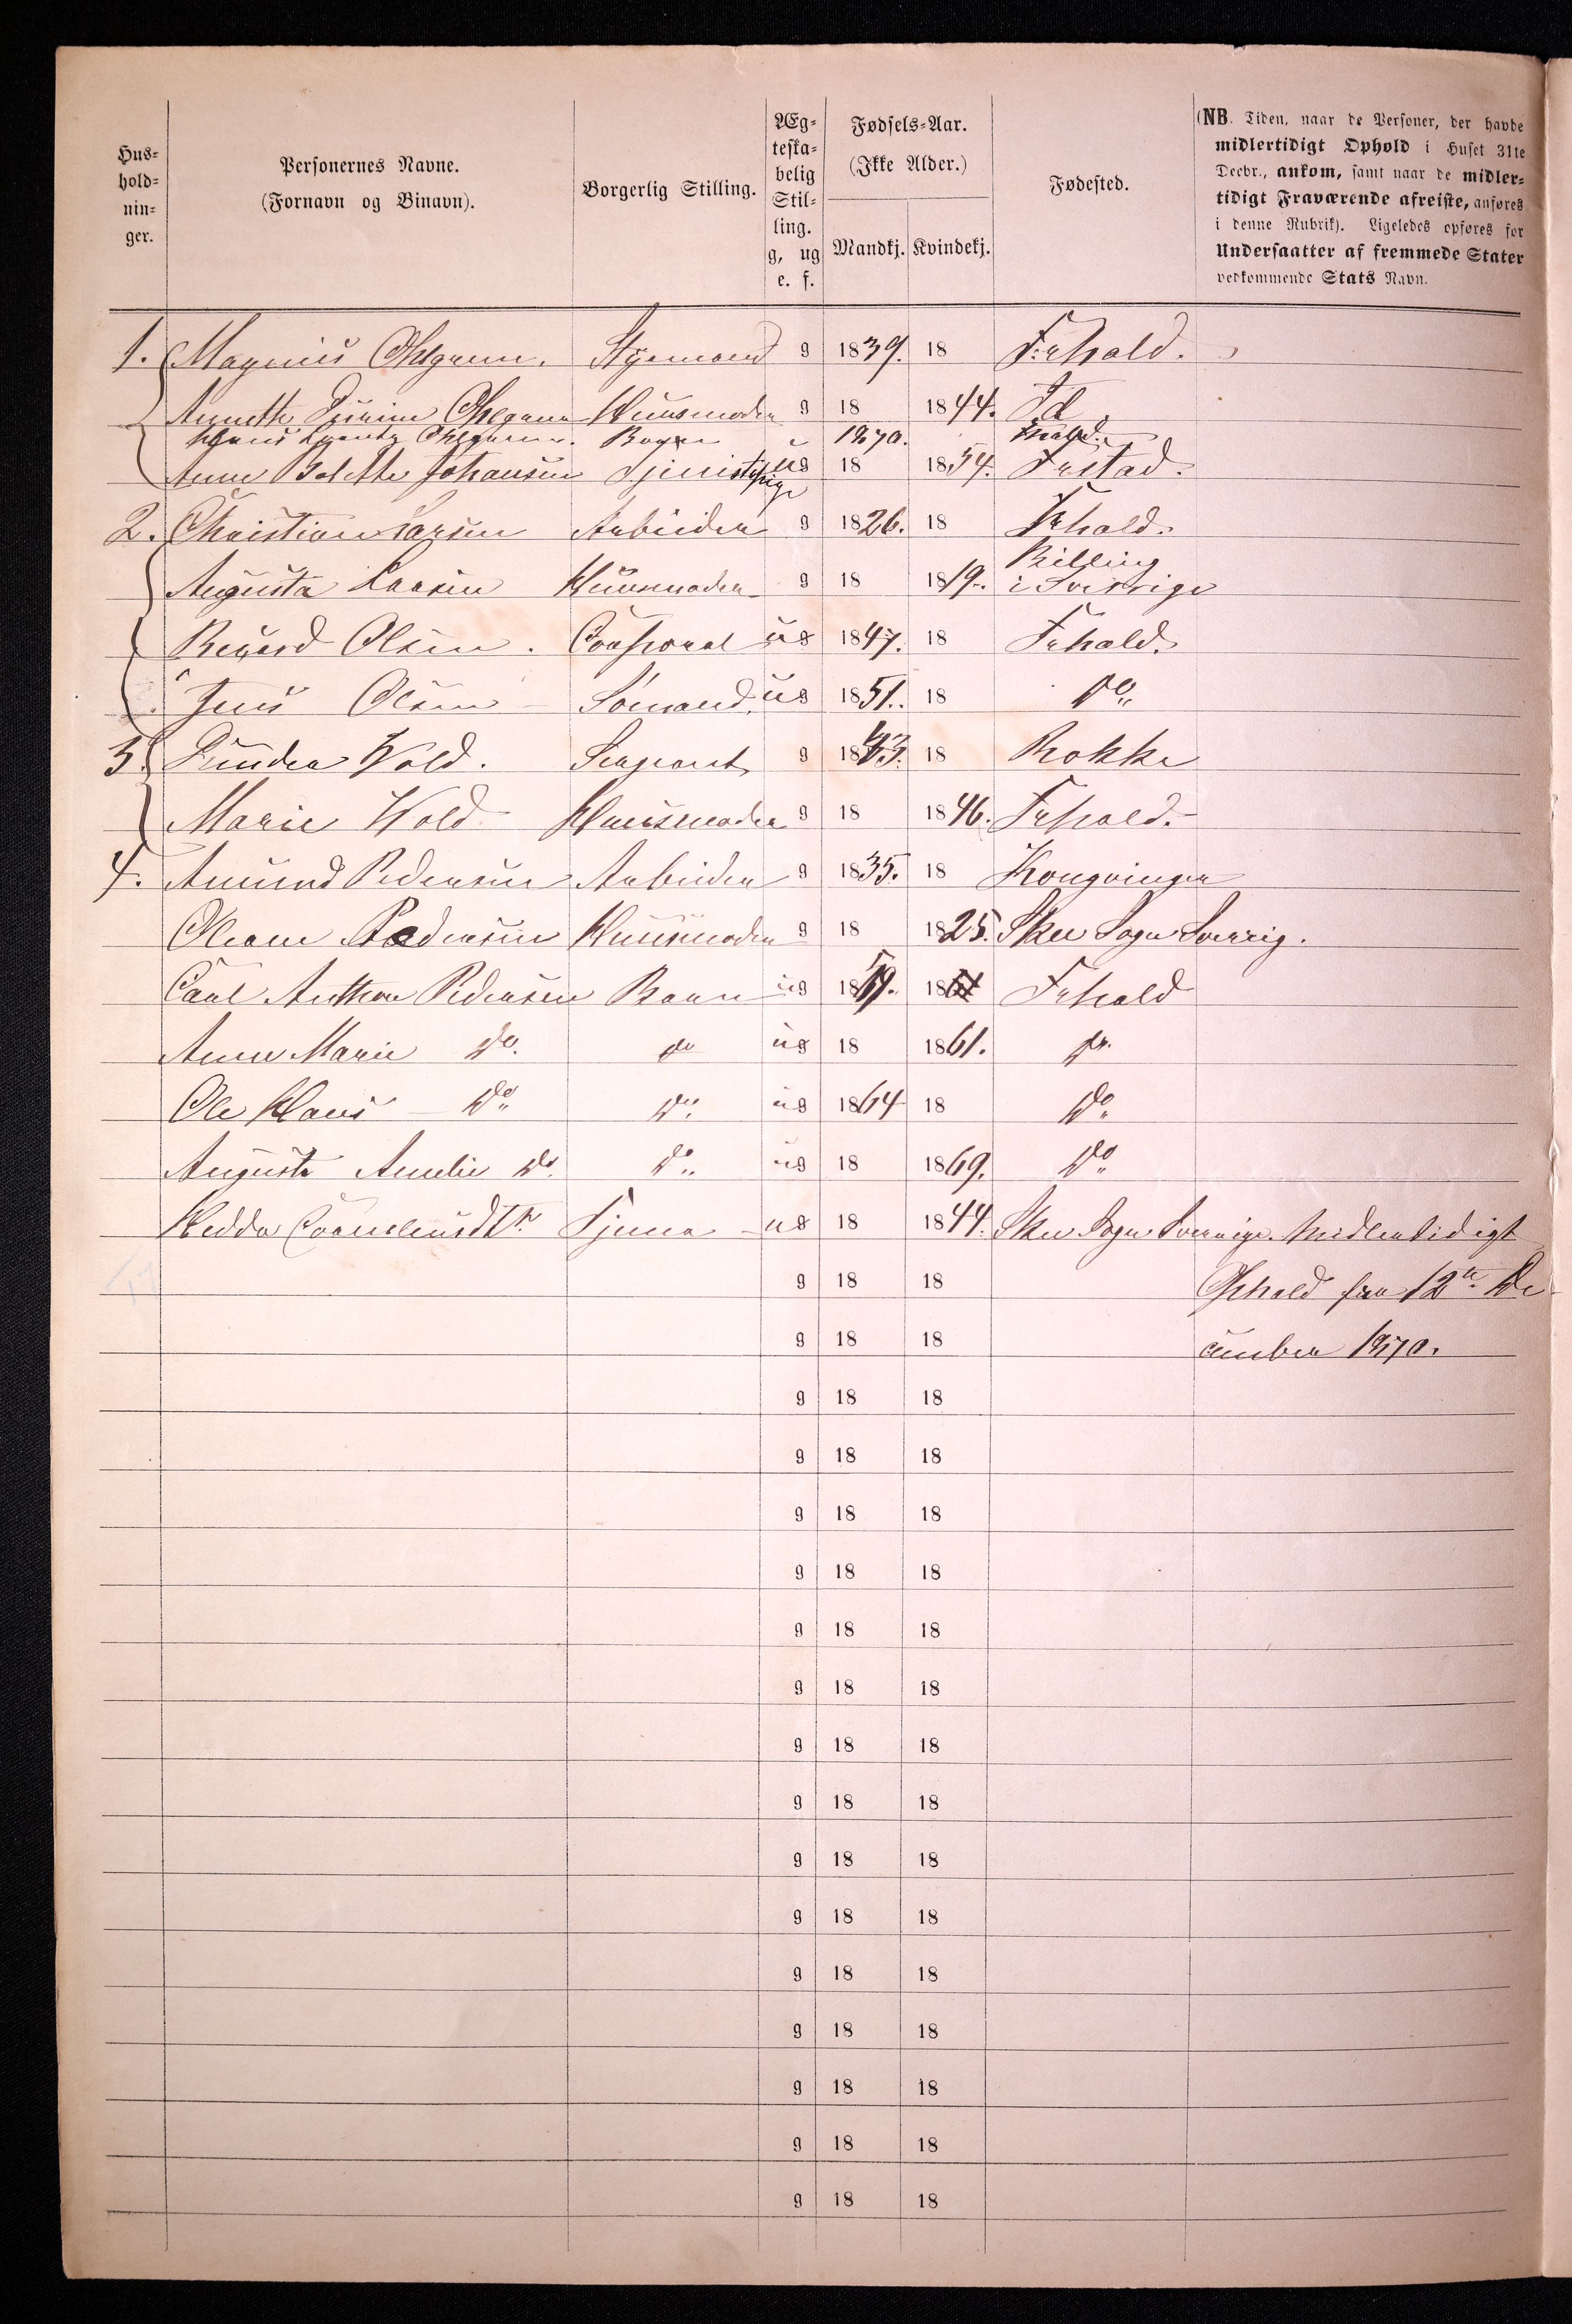 Hus-
hold-
nin-
ger.
Personernes Navne.
(Fornavn og Binavn).
Borgerlig Stilling.
Æg-
teska-
belig
Stil-
ling.
g, ug
e. f.
Fødsels-Aar.
(Ikke Alder.)
Mandkj. Kvindekj.
Fødested.
(NB. Tiden, naar de Personer, der havde
midlertidigt Ophold i Huset 31te
Decbr., ankom, samt naar de midler-
tidigt Fraværende afreiste, anføres
i denne Rubrik). Ligeledes opføres for
Undersaatter af fremmede Stater
vedkommende Stats Navn.
1. Magnus Ohlgren. Styrmand g 1839. 18 Frhald.
Annette Ohlgren Huusmoder g 18 1844. Id
Hans Lorentz Ohlgren. u 1870. Frhald.
Anne Bolette Johansen Tjenistepige ug 18 1854. Frstad.
2. Christian Larsen Arbeider g 1826. 18 Frhald.
Augusta Larsen Huusmoder g 18 1819. Billing i Sverrige
Olsen. Corporal ug 1847. 18 Frhald.
Jens Olsen Sömand. ug 1851. 18 Do
3. Wold. Sergeant g 1843. 18 Rokke
Marie Wold Huusmoder g 18 1846. Frhald.
4. Amund Pedersen Arbeider g 1835. 18 Kongvinger
Oleane Pedersen Huusmoder g 18 1825. Skee Sogn Sverrig.
Carl Anthon Pedersen Barn ug 1859. 1861 Frhald
Anne Marie Do. do ug 18 1861. do.
Ole Hans Do Do. ug 1864 18 Do
Auguste Amelie Do. Do. ug 18 1869. Do
Hedda Corneliusdtr Tjener ug 18 1844. Skee Sogn Sverrige. Midlertidigt
g 18 18 Ophold fra 12te De
g 18 18 cember 1870.
g 18 18
g 18 18
g 18 18
g 18 18
g 18 18
g 18 18
g 18 18
g 18 18
g 18 18
g 18 18
g 18 18
g 18 18
g 18 18
g 18 18
g 18 18